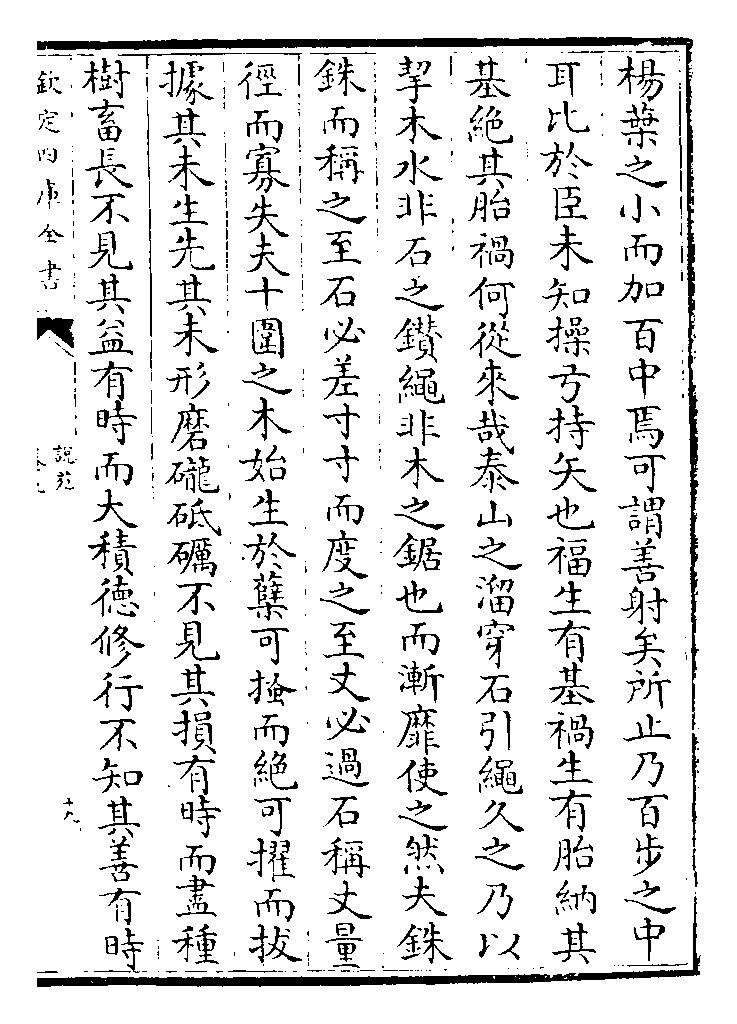 楊葉之小而加百中焉可謂善射矣所止乃百步之中
耳比於臣未知操弓持矢也福生有基禍生有胎納其
基絶其胎禍何從來哉泰山之溜穿石引繩久之乃以
挈木水非石之鑽繩非木之鋸也而漸靡使之然夫銖
銖而稱之至石必差寸寸而度之至丈必過石稱丈量
徑而寡失夫十圍之木始生於蘖可搔而絶可擢而拔
據其未生先其未形磨礲砥礪不見其損有時而盡種
樹畜長不見其益有時而大積德修行不知其善有時
欽定四庫全書
說苑
卷九
十九